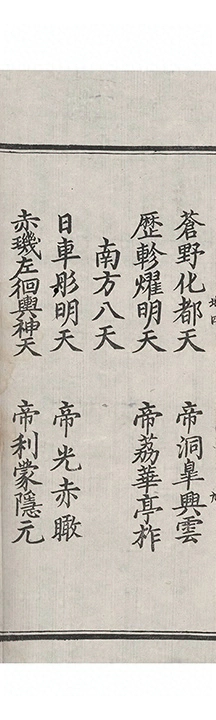 蒼野化都天　帝洞臯興雲
歷軫燿明天　帝荔華亭柞
南方八天
日車彤明天　帝光赤瞰
赤璣左徊興神天　帝利蒙隱元